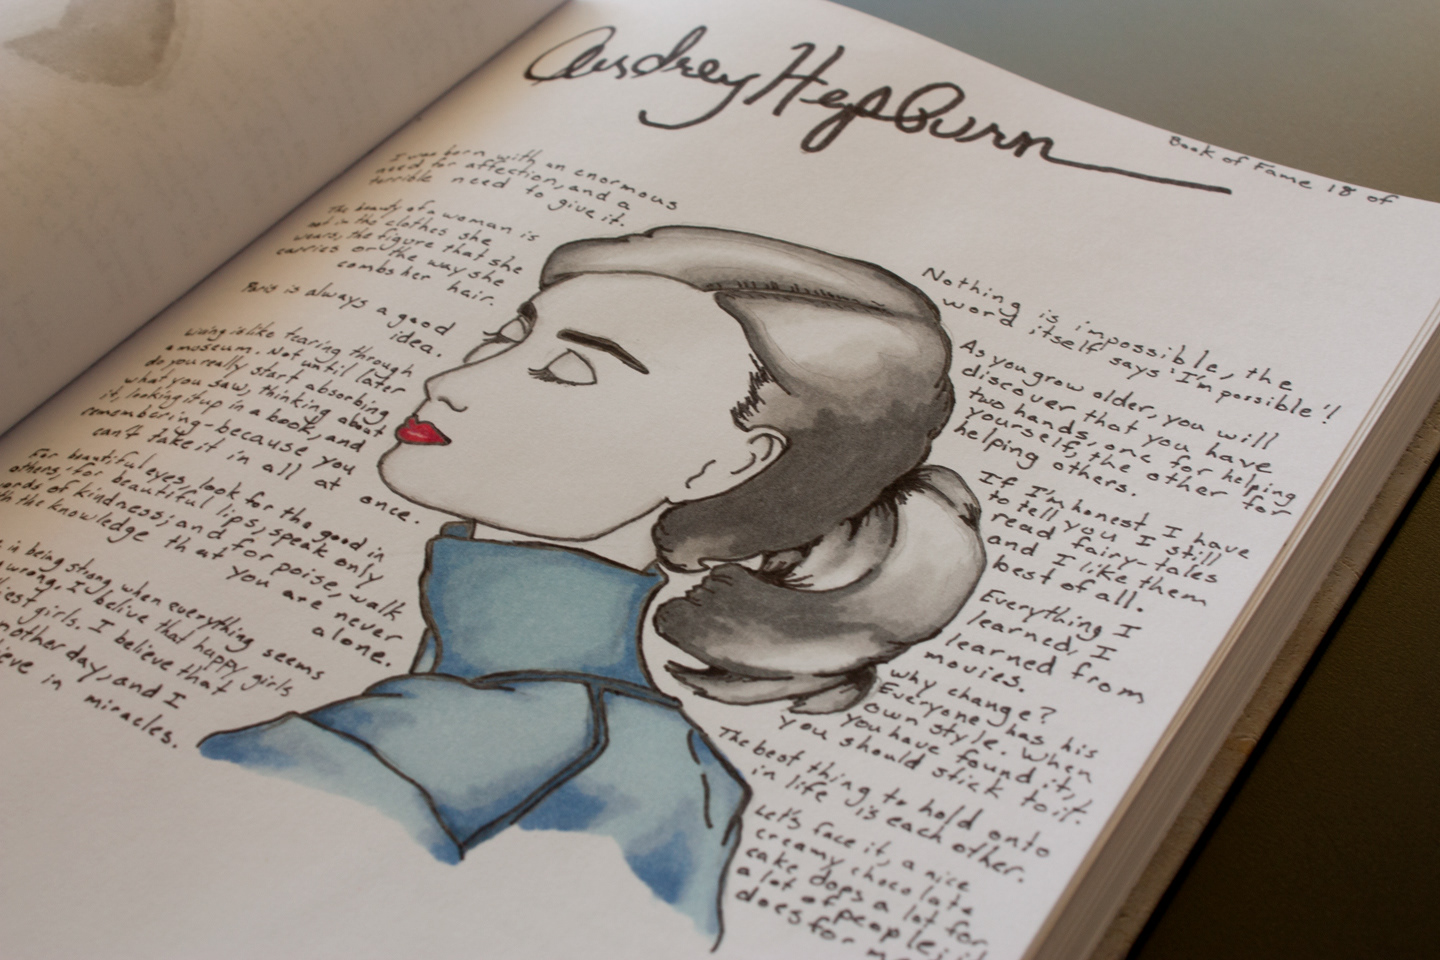 Audrey Hepburn
Book of Fame 18 of
I was born with an enormous
need for affection, and a
terrible need to give it.
The beauty of a woman is
not in the clothes she
wears, the figure that she
carries or the way she
combs her hair.
Paris is always a good
idea.
Living is like tearing through
a museum. Not until later
do you really start absorbing
what you saw, thinking about
it, looking it up in a book, and
remembering - because you
can't take it in all at once.
For beautiful eyes, look for the good in
others; for beautiful lips, speak only
words of kindness; and for poise, walk
with the knowledge that you are never
alone.
is being strong when everything seems
wrong. I belive that happy girls
iest girls. I believe that
nother day, and I
ieve in miracles.
Nothing is impossible, the
word itself says 'I'm possible'!
As you grow older, you will
discover that you have
two hands, one for helping
yourself, the other for
helping others.
If I'm honest I have
to tell you I still
read fairy-tales
and I like them
best of all.
Everything I
learned, I
learned from
movies.
why change?
Everyone has his
own style. When
you have found it,
you should stick to it.
The best thing to hold onto
in life is each other.
Let's face it, a nice
creamy chocolate
cake dops a lot for
a lot of people; it
does for m